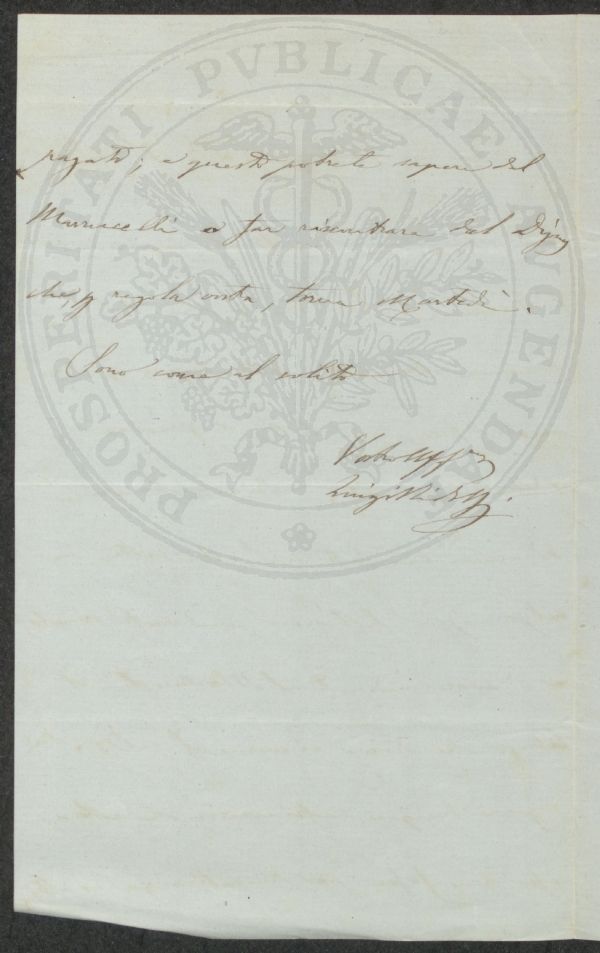 PROSPERITATI PVBLICAE AVGENDAE
pagati; e questo potrete sapere dal
o far riscontrare dal
che p regola vostra, torna Martedì.
Sono come al solito
Vostro Affmo
Luigi